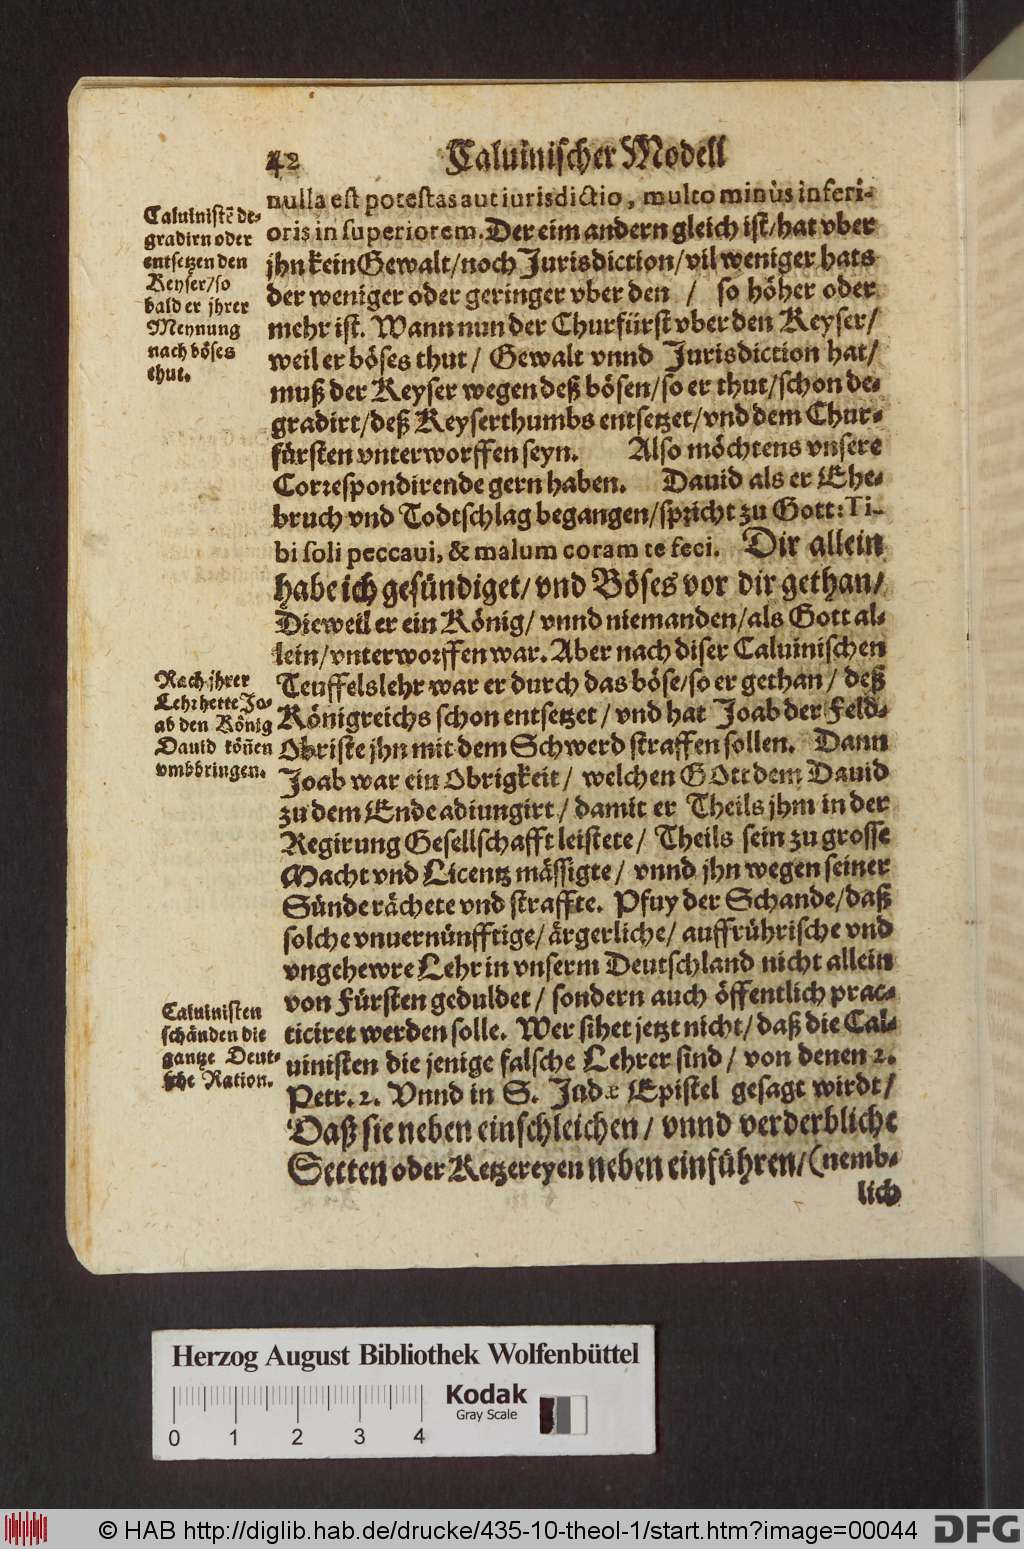 42
Caluinischer Modell
Caluinistē de-
gradirn oder
entsetzen den
Keyser/so
bald er jhrer
Meynung
nach böses
thut.
nulla est potestas aut iurisdictio, multo minùs inferi-
oris in superiorem. Der eim andern gleich ist/hat vber
jhn kein Gewalt/noch Jurisdiction/vil weniger hats
der weniger oder geringer vber den / so höher oder
mehr ist. Wann nun der Churfürst vber den Keyser/
weil er böses thut/ Gewalt vnnd Jurisdiction hat/
muß der Keyser wegen deß bösen/so er thut/schon de-
gradirt/deß Keyserthumbs entsetzet/vnd dem Chur-
fürsten vnterworffen seyn. Also möchtens vnsere
Correspondirende gern haben. Dauid als er Ehe-
bruch vnd Todtschlag begangen/spricht zu Gott: Ti-
bi soli peccaui, & malum coram te feci. Dir allein
habe ich gesündiget/vnd Böses vor dir gethan/
Dieweil er ein König/ vnnd niemanden/als Gott al-
lein/vnterworffen war. Aber nach diser Caluinischen
Teuffelslehr war er durch das böse/so er gethan/ deß
Königreichs schon entsetzet/ vnd hat Joab der Feld-
Obriste jhn mit dem Schwerd straffen sollen. Dann
Joab war ein Obrigkeit/ welchen GOtt dem Dauid
zu dem Ende adiungirt/ damit er Theils jhm in der
Regirung Gesellschafft leistete/ Theils sein zu grosse
Macht vnd Licentz mässigte/ vnnd jhn wegen seiner
Sünde rächete vnd straffte. Pfuy der Schande/daß
solche vnuernünfftige/ärgerliche/ auffrührische vnd
vngehewre Lehr in vnserm Deutschland nicht allein
von Fürsten geduldet/ sondern auch öffentlich prac-
ticiret werden solle. Wer sihet jetzt nicht/daß die Cal-
uinisten die jenige falsche Lehrer sind/ von denen 2.
Petr. 2. Vnnd in S. Judæ Epistel gesagt wirdt/
Daß sie neben einschleichen/ vnnd verderbliche
Secten oder Ketzereyen neben einführen/(nemb-
lich
Nach jhrer
Lehr hette Jo-
ab den König
Dauid köñen
vmbbringen.
Caluinisten
schänden die
gantze Deut-
sche Nation.
Herzog August Bibliothek Wolfenbüttel
Kodak
Gray Scale
0 1 2 3 4
© HAB http://diglib.hab.de/drucke/435-10-theol-1/start.htm?image=00044
DFG